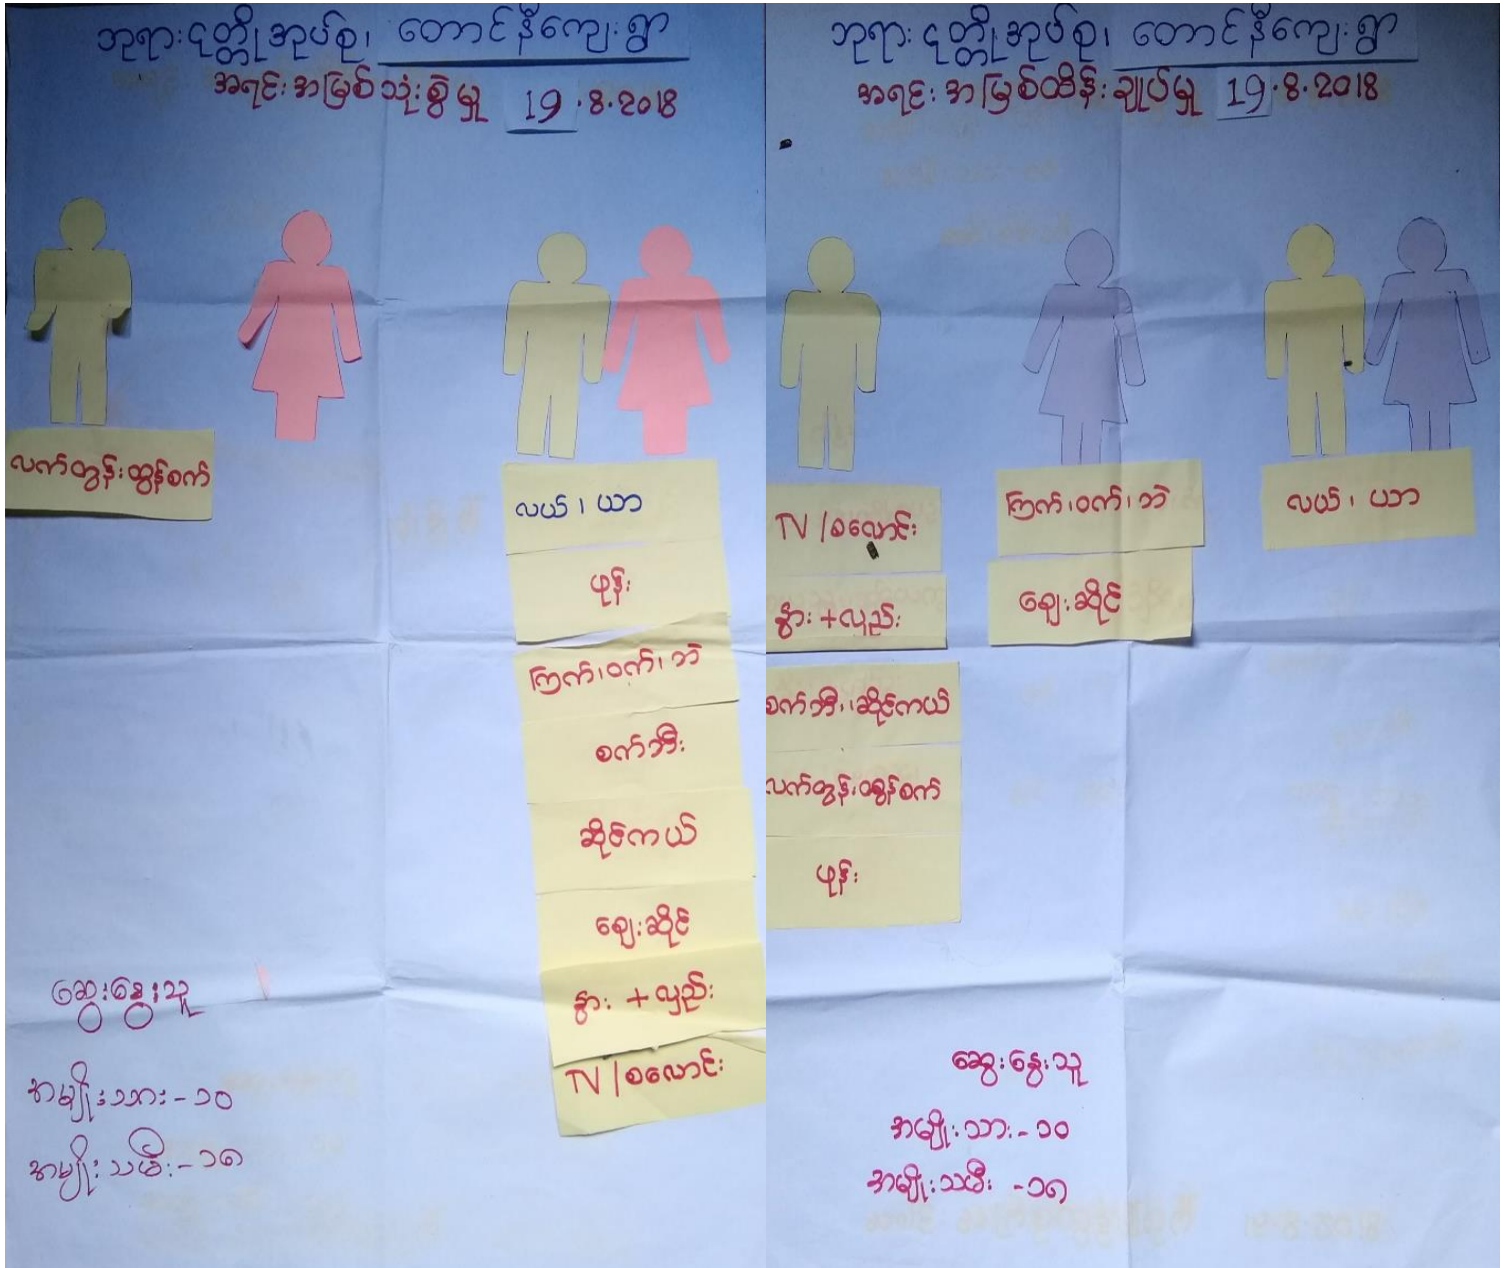 ဘုရားငုတ္တိုအုပ်စု၊ တောင်နီကျေးရွာ
အရင်းအမြစ်သုံးစွဲမှု 19.8.2018
လက်တွန်းထွန်စက်
လယ်၊ ယာ
ဖုန်း
ကြက်၊ဝက်၊ဘဲ
စက်ဘီး
ဆိုင်ကယ်
ဈေးဆိုင်
နွား +လှည်း
TV /စလောင်း
ဆွေးနွေးသူ
အမျိုးသား-၁၀
အမျိုးသမီး-၁၈
ဘုရားငုတ္တိုအုပ်စု၊ တောင်နီကျေးရွာ
အရင်းအမြစ်ထိန်းချုပ်မှု 19.8.2018
TV /စလောင်း
နွား +လှည်း
စက်ဘီး၊ဆိုင်ကယ်
လက်တွန်းထွန်စက်
ဖုန်း
ကြက်၊ဝက်၊ဘဲ
ဈေးဆိုင်
လယ်၊ ယာ
ဆွေးနွေးသူ
အမျိုးသား-၁၀
အမျိုးသမီး -၁၈